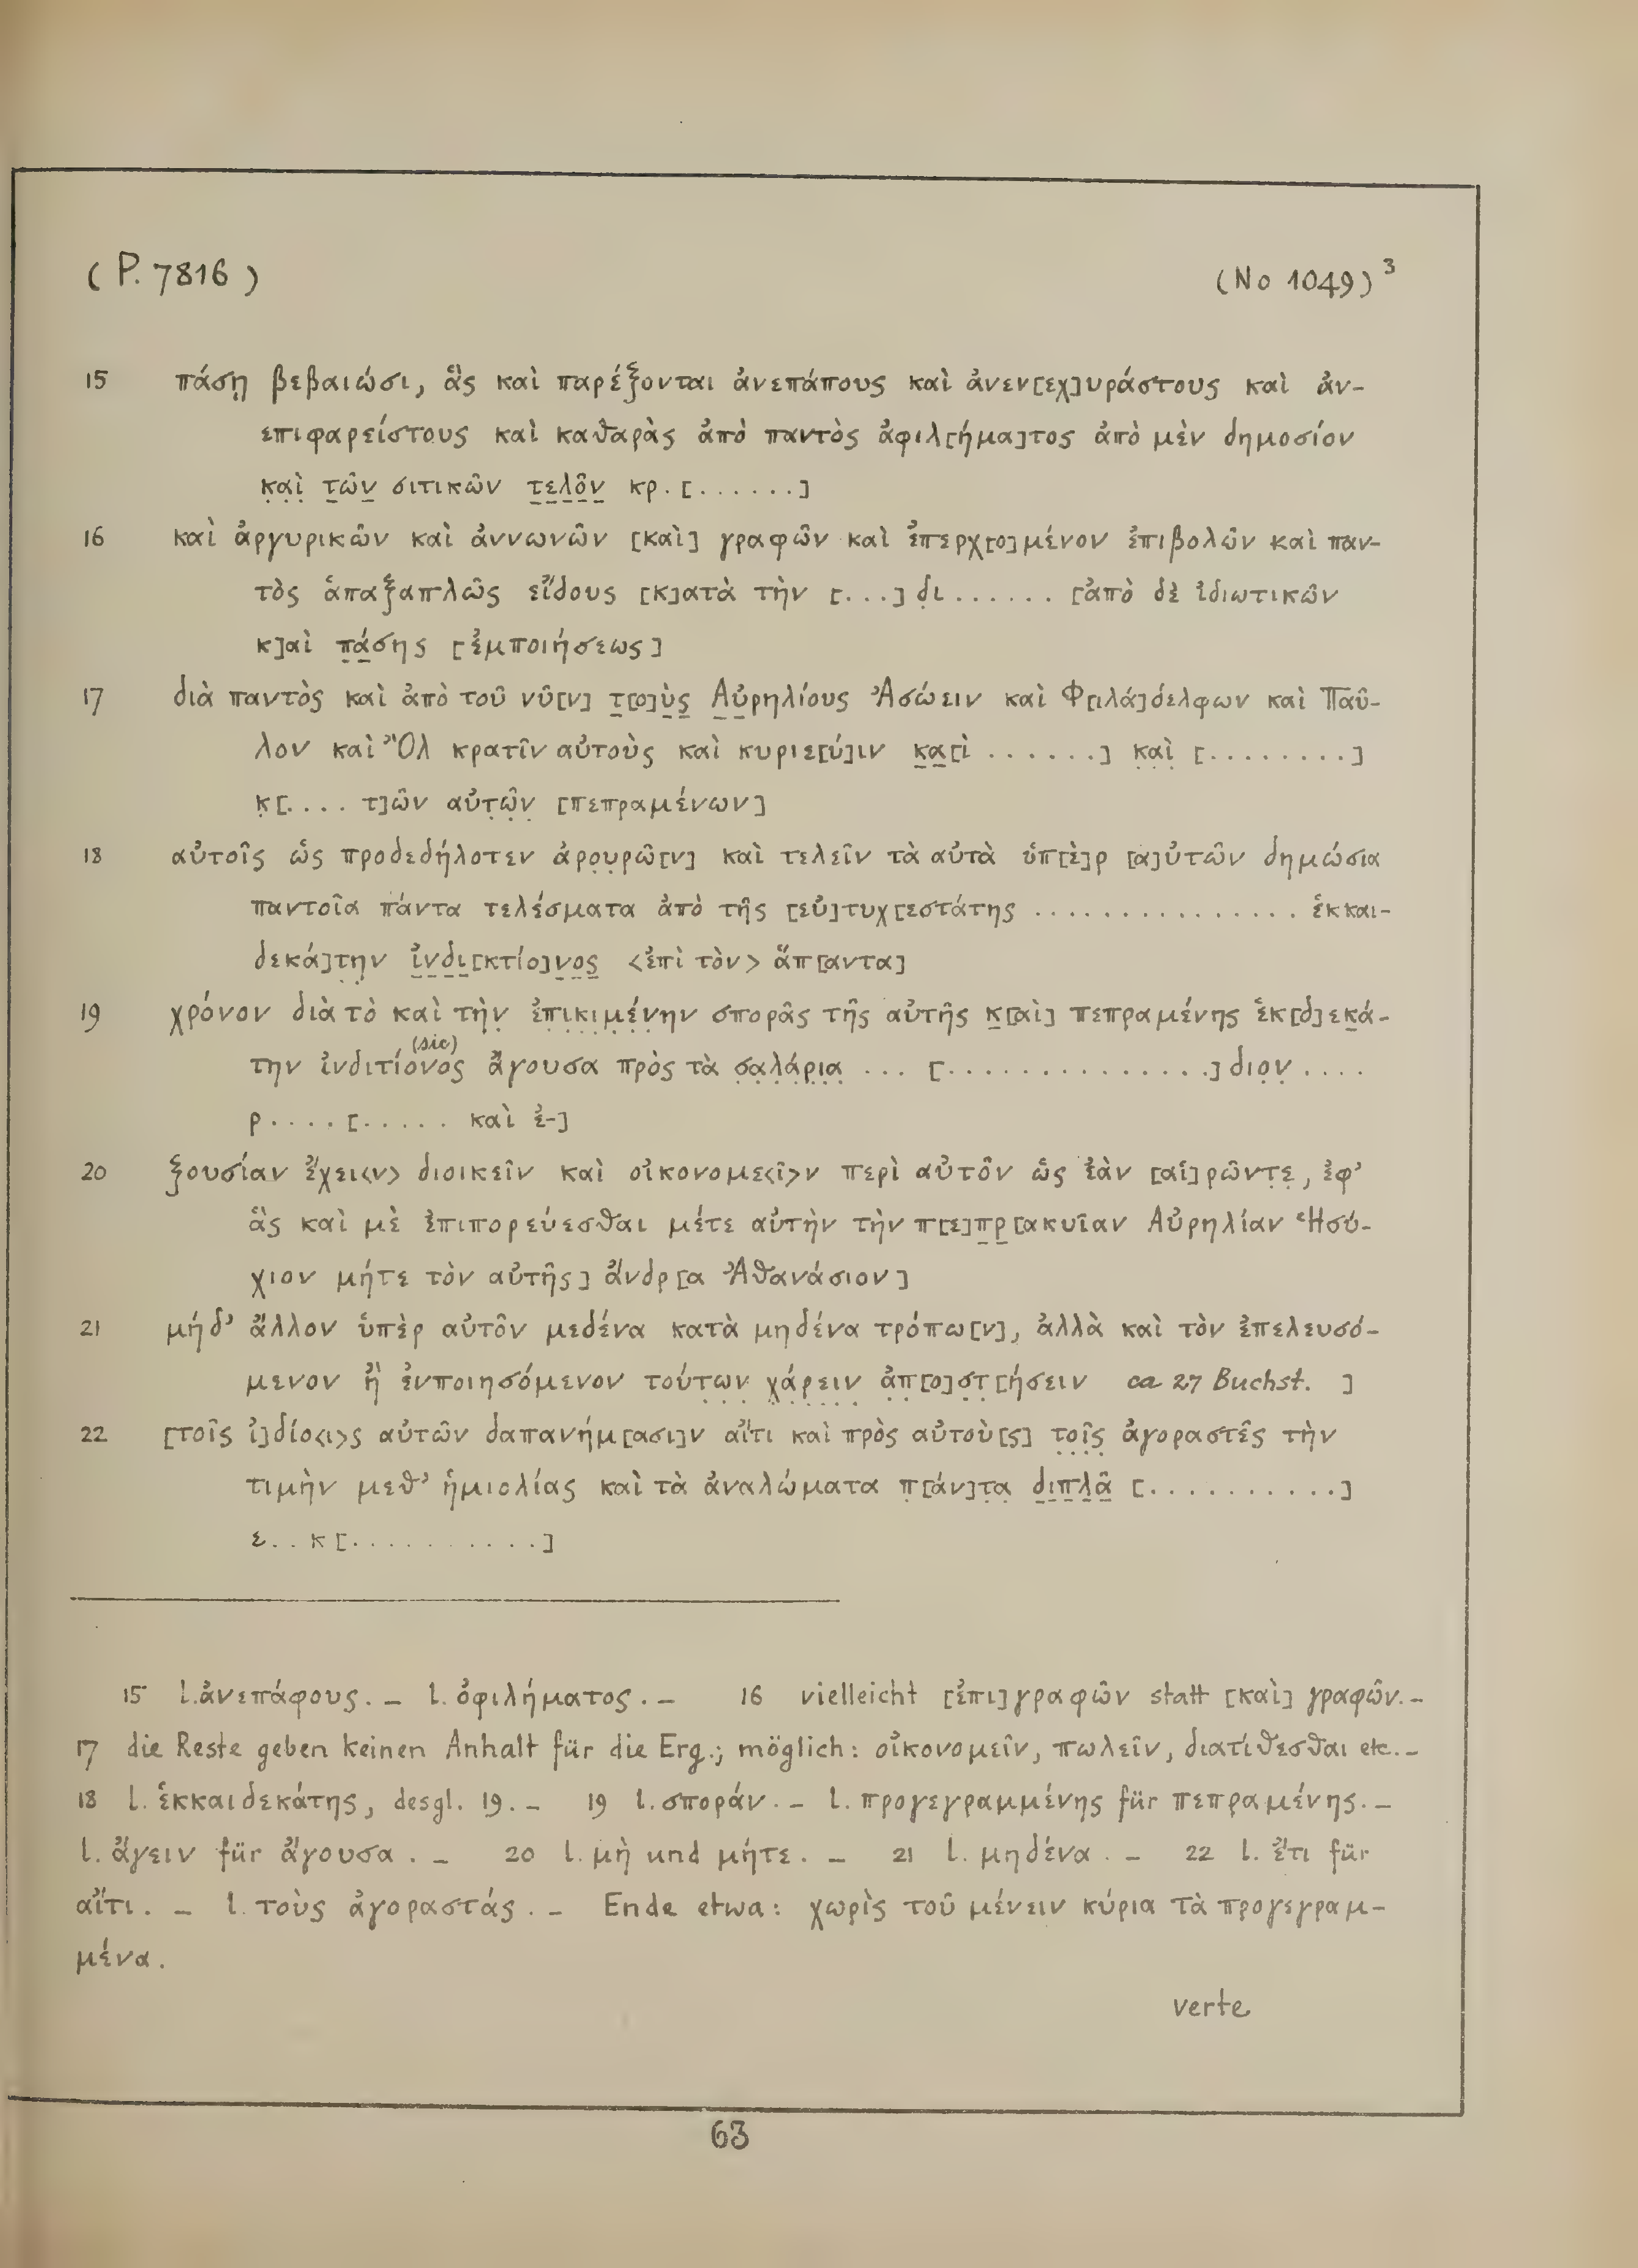 (P. 7816) (No 1049)³
15 πάσῃ βεβαιώσι, ἃς καὶ παρέξονται ἀνεπάπους καὶ ἀνεν[εχ]υράστους καὶ ἀν-
επιφαρείστους καὶ καθαρὰς ἀπὸ παντὸς ἀφιλ[ήμα]τος ἀπὸ μὲν δημοσίον
κ̣α̣ὶ̣ τ̲ῶν̲ σιτικῶν τ̲ε̲λ̲ο̲ ͂ν̲ κρ. [......]
16 καὶ ἀργυρικῶν καὶ ἀννωνῶν [καὶ] γραφῶν καὶ ἐπερχ[ο]μένον ἐπιβολῶν καὶ παν-
τὸς ἁπαξαπλῶς εἴδους [κ]ατὰ τὴν [...] δ̣ι ...... [ἀπὸ δὲ ἰδιωτικῶν
κ]αὶ π̲ά̲σης [ἐμποιήσεως]
17 διὰ παντὸς καὶ ἀπὸ τοῦ νῦ[ν] τ̲[ο]ὺ̲ς̲ Α̲ὐ̲ρηλίους Ἀσώειν καὶ Φ[ιλά]δελφων καὶ Παῦ-
λον καὶ Ὂλ κρατῖν αὐτοὺς καὶ κυριε[ύ]ιν κ̲α̲[ὶ ......] κ̣α̣ὶ̣ [........]
κ̣[.... τ]ῶν αὐτ̣ῶ̣ν̣ [πεπραμένων]
18 αὐτοῖς ὡς προδεδήλοτεν ἀρο̣υ̣ρῶ[ν] καὶ τελεῖν τὰ αὐτὰ ὑπ[ὲ]ρ [α]ὐτῶν δημώσια
παντοῖα πάντα τελέσματα ἀπὸ τῆς [εὐ]τυχ[εστάτης ............... ἑκκαι-
δεκά]τ̣η̣ν ἰ̲ν̲δ̲ι̲[κτίο]ν̲ο̲ς̲ <ἐπὶ τὸν> ἅπ[αντα]
19 χρόνον διὰ τὸ καὶ τὴν̣ ἐ̣π̣ι̣κ̣ι̣μ̣έ̣ν̣ην σπορᾶς τῆς αὐτῆς κ̲[αὶ] πεπραμένης ἑκ[δ]εκ̲ά-
την ἰνδιτίονος (sic) ἄγουσα πρὸς τὰ σ̣α̣λ̣ά̣ρ̣ι̣α̣ ... [..............] διο̣ν̣ ....
ρ....[..... καὶ ἐ-]
20 ξουσίαν ἔχει<ν> διοικεῖν καὶ οἰκονομε<ῖ>ν περὶ αὐτôν ὡς ἐὰν [αἱ]ρῶντ̣ε̣, ἐφ’
ἃς καὶ μὲ ἐπιπορεύεσθαι μέτε αὐτὴν τὴν π[ε]π̲ρ̲[ακυῖαν Αὐρηλίαν Ἡσύ-
χιον μήτε τὸν αὐτῆς] ἄνδρ[α Ἀθανάσιον]
21 μήδ’ ἄλλον ὑπὲρ αὐτôν μεδένα κατὰ μηδένα τρόπω[ν], ἀλλὰ καὶ τὸν ἐπελευσό-
μενον ἢ ἐνποιησόμενον τούτ̣ω̣ν̣ χ̣ά̣ρ̣ε̣ι̣ν̣ ἀ̣π̣[ο]σ̣τ̣[ήσειν ca 27 Buchst. ]
22 [τοῖς ἰ]δίο<ι>ς αὐτῶν δαπανήμ[ασι]ν αἴτι καὶ πρὸς αὐτοὺ[ς] τ̣ο̣ῖ̣ς̣ ἀγοραστês τὴν
τιμὴν μεθ’ ἡμιολίας καὶ τὰ ἀναλώματα π̣[άν]τ̣α̣ δ̲ι̲π̲λ̲ᾶ̲ [..........]
ε.. κ[..........]
15 l. ἀνεπάφους. – l. ὀφιλήματος. – 16 vielleicht [ἐπι]γραφῶν statt [καὶ] γραφῶν. –
17 die Reste geben keinen Anhalt für die Erg.; möglich: οἰκονομεῖν, πωλεῖν, διατίθεσθαι etc. –
18 l. ἑκκαιδεκάτης, desgl. 19. – 19 l. σποράν. – l. προγεγραμμένης für πεπραμένης. –
l. ἄγειν für ἄγουσα. – 20 l. μὴ und μήτε. – 21 l. μηδένα. – 22 l. ἔτι für
αἴτι. – l. τοὺς ἀγοραστάς. – Ende etwa: χωρὶς τοῦ μένειν κύρια τὰ προγεγραμ-
μένα.
verte
63